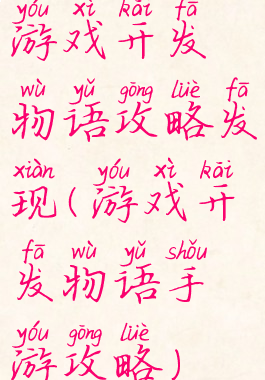 yóu xì kāi fā
游戏开发
wù yǔ gōng lüè fā
物语攻略发
xiàn yóu xì kāi
现(游戏开
fā wù yǔ shǒu
发物语手
yóu gōng lüè
游攻略)